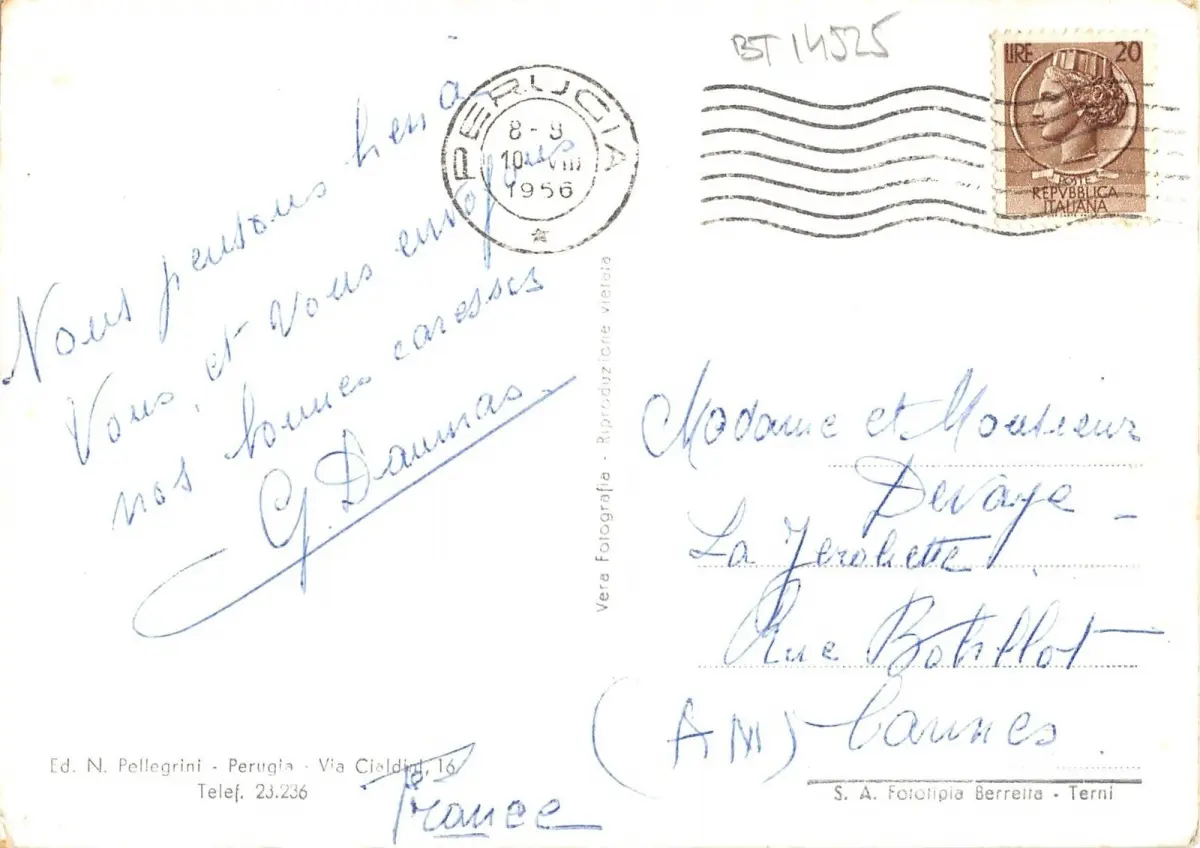 BT 14525
PERUGIA
8 - 9
10 VIII
1956
LIRE 20
POSTE
REPVBBLICA
ITALIANA
Nous pensons
Vous, et vous envoyons
nos bonnes caresses
G. Daumas
Vera Fotografia - Riproduzione vietata
Madame et Monsieur
La
Rue
(AM) Cannes
France
Ed. N. Pellegrini - Perugia - Via Cialdini, 16
Telef. 23.236
S. A. Fototipia Berretta - Terni